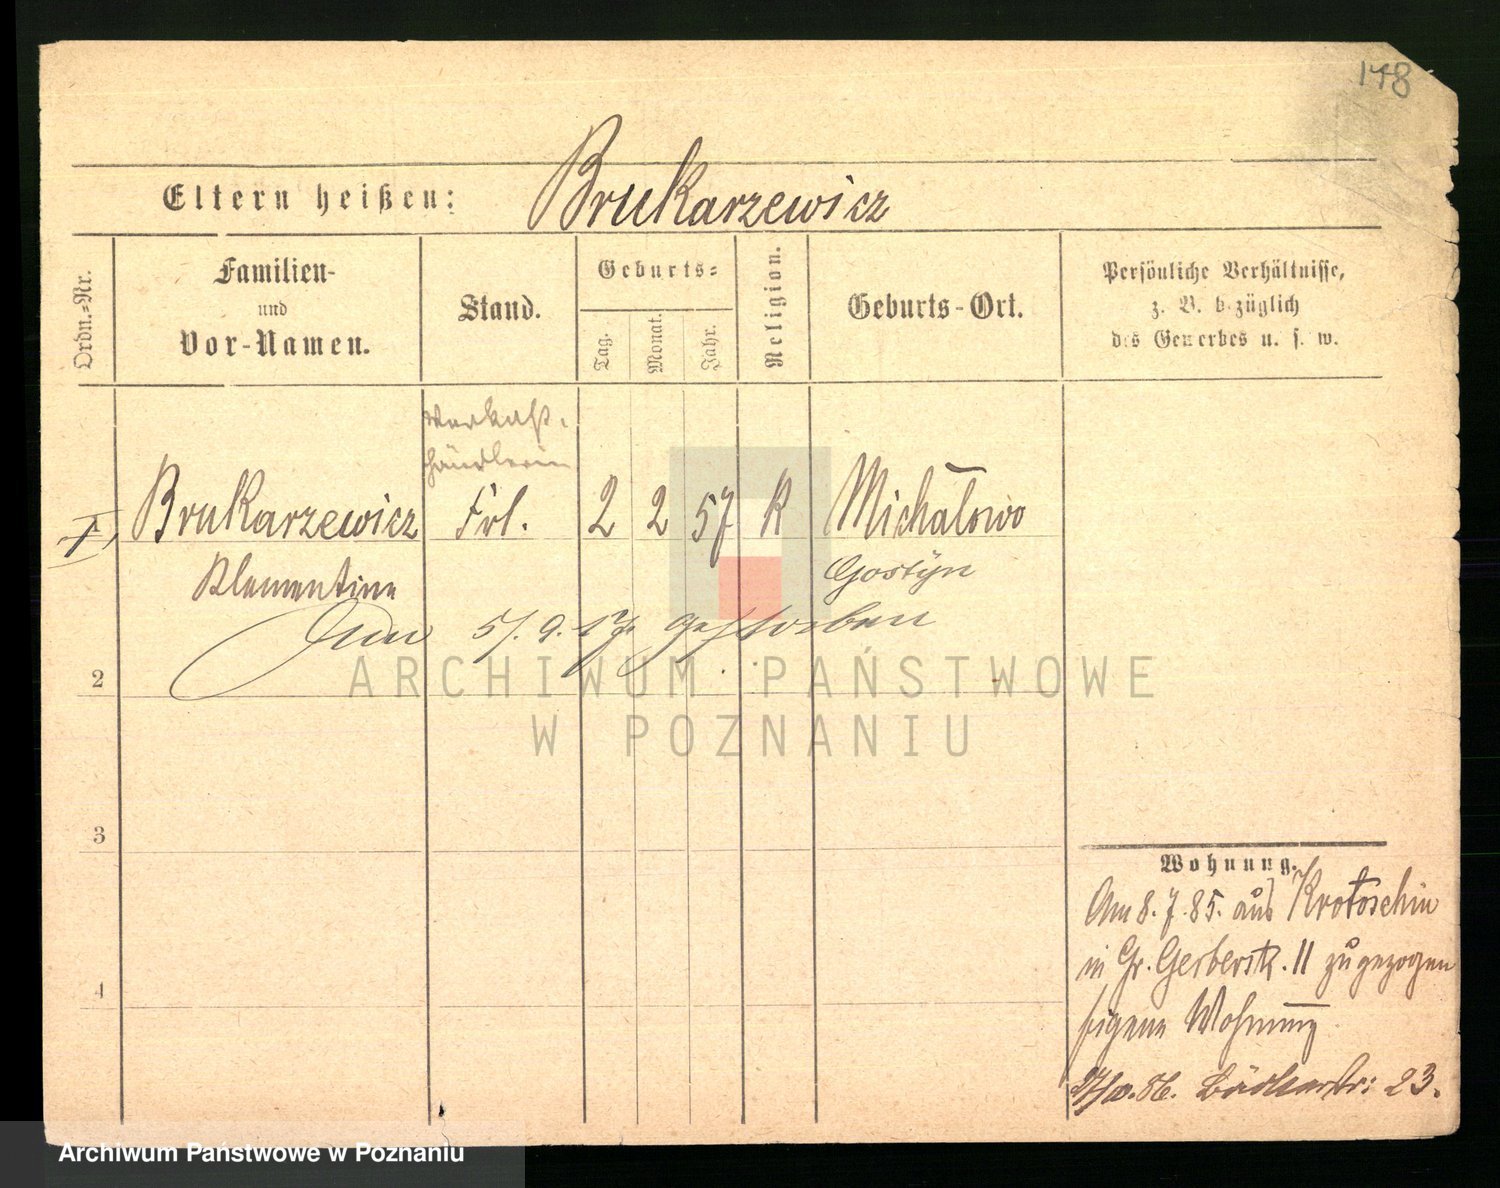 148
Eltern heißen: Brukarzewicz
Ordn.-Nr.
Familien-
und
Vor-Namen.
Stand.
Geburts-
Tag.
Monat.
Jahr.
Religion.
Geburts-Ort.
Persönliche Verhältnisse,
z. B. bezüglich
des Gewerbes u. s. w.
händlerin
1 Brukarzewicz Frl. 2 2 57 K Michałowo
Klementine Gostyn
5/.9.17. gestorben
2
3
4
Wohnung.
Am 8.7.85. aus Krotoschin
in Gr. Gerberstr. 11 zugezogen
eigene Wohnung
Bäckerstr: 23.
ARCHIWUM PAŃSTWOWE
W POZNANIU
Archiwum Państwowe w Poznaniu